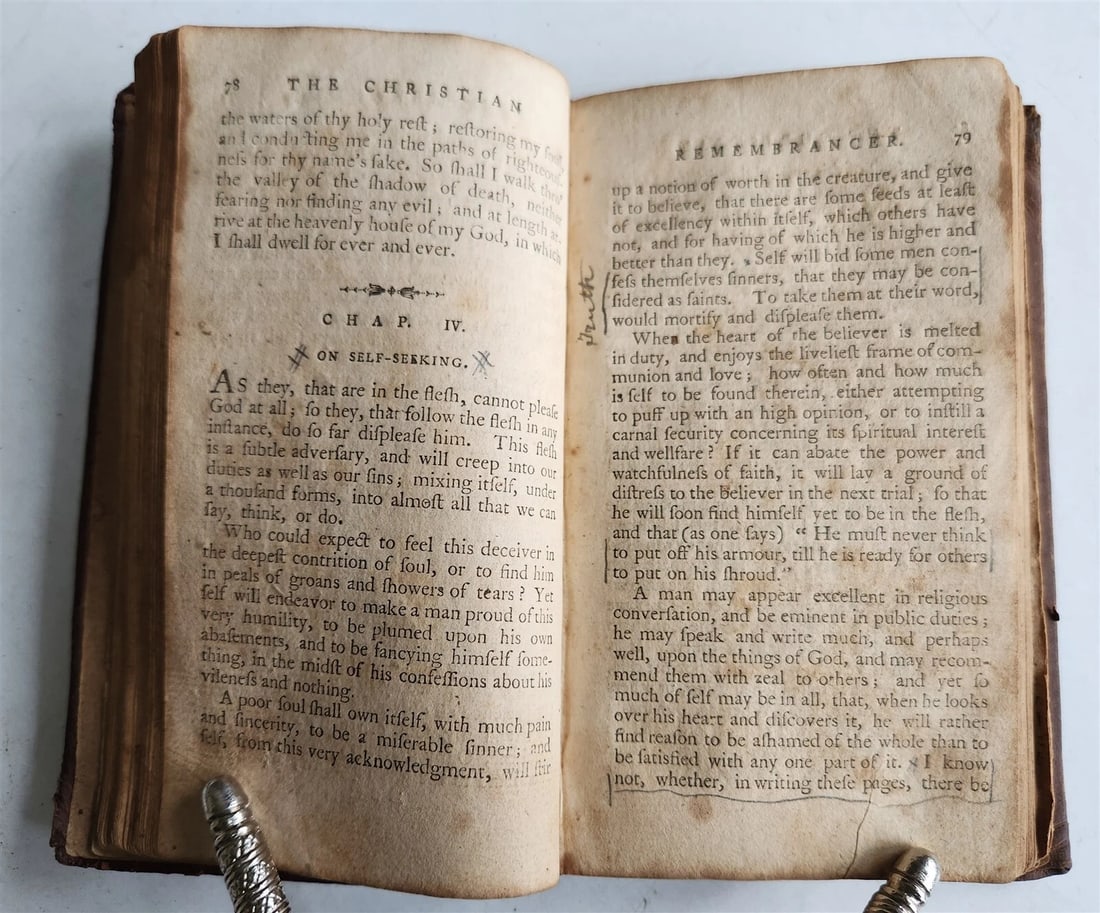 78 THE CHRISTIAN
the waters of thy holy reſt; reſtoring my ſoul,
and conducting me in the paths of righteouſ-
neſs for thy name's ſake. So ſhall I walk thro'
the valley of the ſhadow of death, neither
fearing nor finding any evil; and at length ar-
rive at the heavenly houſe of my God, in which
I ſhall dwell for ever and ever.
CHAP. IV.
# ON SELF-SEEKING. #
AS they, that are in the fleſh, cannot pleaſe
God at all; ſo they, that follow the fleſh in any
inſtance, do ſo far diſpleaſe him. This fleſh
is a ſubtle adverſary, and will creep into our
duties as well as our ſins; mixing itſelf, under
a thouſand forms, into almoſt all that we can
ſay, think, or do.
Who could expect to feel this deceiver in
the deepeſt contrition of ſoul, or to find him
in peals of groans and ſhowers of tears? Yet
ſelf will endeavor to make a man proud of this
very humility, to be plumed upon his own
abaſements, and to be fancying himſelf ſome-
thing, in the midſt of his confeſſions about his
vileneſs and nothing.
A poor ſoul ſhall own itſelf, with much pain
and ſincerity, to be a miſerable ſinner; and
ſelf, from this very acknowledgment, will ſtir
REMEMBRANCER. 79
up a notion of worth in the creature, and give
it to believe, that there are ſome ſeeds at leaſt
of excellency within itſelf, which others have
not, and for having of which he is higher and
better than they. Self will bid ſome men con-
feſs themſelves ſinners, that they may be con-
ſidered as ſaints. To take them at their word,
would mortify and diſpleaſe them.
Truth
When the heart of the believer is melted
in duty, and enjoys the livelieſt frame of com-
munion and love; how often and how much
is ſelf to be found therein, either attempting
to puff up with an high opinion, or to inſtill a
carnal ſecurity concerning its ſpiritual intereſt
and wellfare? If it can abate the power and
watchfulneſs of faith, it will lay a ground of
diſtreſs to the believer in the next trial; ſo that
he will ſoon find himſelf yet to be in the fleſh,
and that (as one ſays) “ He muſt never think
to put off his armour, till he is ready for others
to put on his ſhroud.”
A man may appear excellent in religious
converſation, and be eminent in public duties;
he may ſpeak and write much, and perhaps
well, upon the things of God, and may recom-
mend them with zeal to others; and yet ſo
much of ſelf may be in all, that, when he looks
over his heart and diſcovers it, he will rather
find reaſon to be aſhamed of the whole than to
be ſatisfied with any one part of it. x I know
not, whether, in writing theſe pages, there be